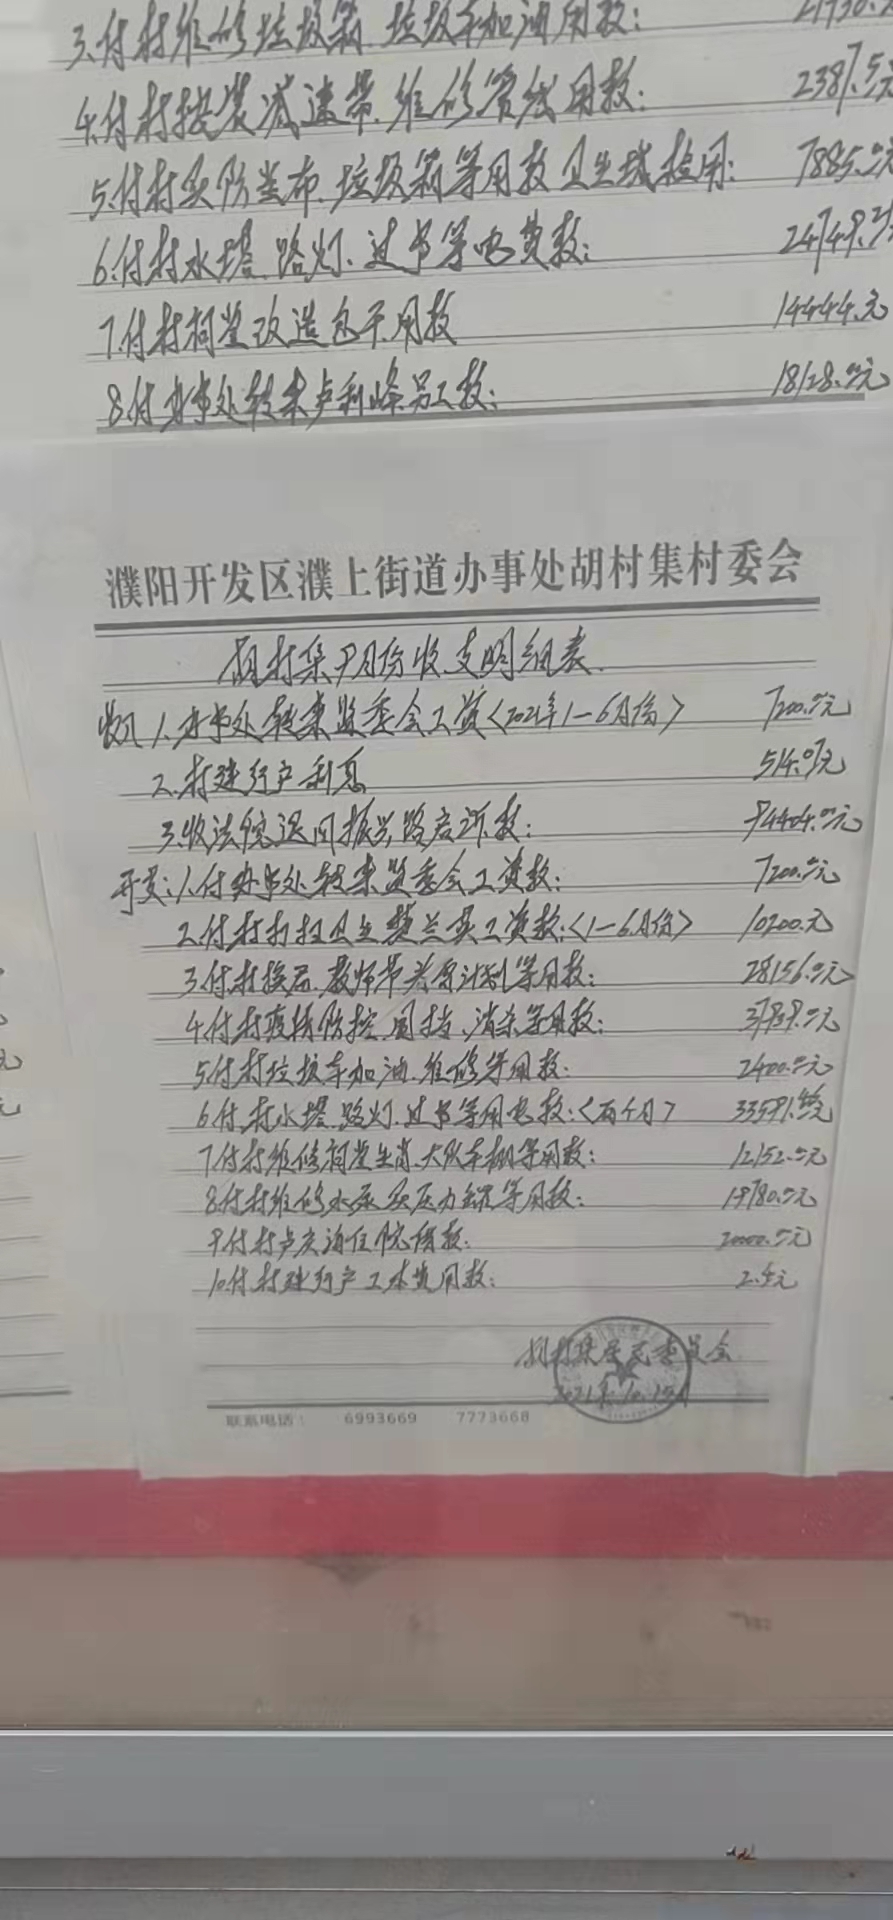 3.付村维修垃圾箱.垃圾车加油用款:
4.付村按装减速带.维修管线用款: 2387.5元
5.付村 垃圾箱等用款卫生城检用: 7885.00元
6.付村水塔.路灯.过节等电费款:
7.付村祠堂改造包干用款 14444.元
8.付办事处转来卢利峰员工款: 18128.00元
濮阳开发区濮上街道办事处胡村集村委会
胡村集9月份收.支明细表.
收入1.办事处转来监委会工资<2021年1—6月份> 7200.00元
2.村建行户利息 514.07元
3.收法院退回振兴路启诉款: 94404.00元
开支:1.付办事处转来监委会工资款: 7200.00元
2.付村打扫卫生 工资款:<1—6月份> 10200.元
3.付村换届.教师节 计划等用款: 28156.00元
4.付村疫情防控.围挡.消杀等用款: 00元
5.付村垃圾车加油.维修等用款: 2400.00元
6.付.村水塔.路灯.过节等用电款:<两个月>
7.付村维修祠堂生肖.大队车棚等用款: 12152.00元
8.付村维修水泵及压力罐等用款: 19780.00元
9.付村卢 住院借款: 20000.00元
10.付村建行户工本费用款: 2.4元
胡村集居民委员会
2021年.10.
联系电话: 6993669 7773668